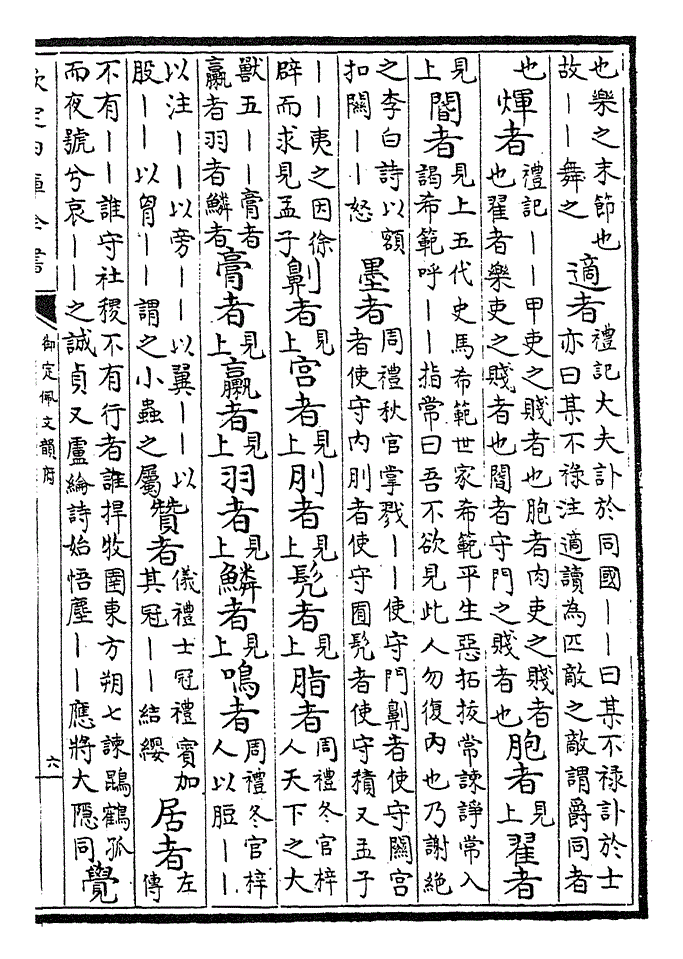 也樂之末節也故——舞之適者禮記大夫訃於同國——曰某不祿訃於士亦曰某不祿注適讀為匹敵之敵謂爵同者
也煇者禮記——甲吏之賤者也胞者肉吏之賤者也翟者樂吏之賤者也閽者守門之賤者也胞者見上翟者
見上閽者見上五代史馬希範世家希範平生惡拓拔常諫諍常入謁希範呼——指常曰吾不欲見此人勿復內也乃謝絕
之李白詩以額扣關——怒墨者周禮秋官掌戮——使守門劓者使守關宮者使守內刖者使守囿髡者使守積又孟子
——夷之因徐辟而求見孟子劓者見上宮者見上刖者見上髡者見上脂者周禮冬官梓人天下之大
獸五——膏者臝者羽者鱗者膏者見上臝者見上羽者見上鱗者見上鳴者周禮冬官梓人以脰——
以注——以旁——以翼——以股——以胷——謂之小蟲之屬贊者儀禮士冠禮賓加其冠——結纓居者左傳
不有——誰守社稷不有行者誰捍牧圉東方朔七諫鵾鶴孤而夜號兮哀——之誠貞又盧綸詩始悟塵——應將大隱同覺
欽定四庫全書
御定佩文韻府
六